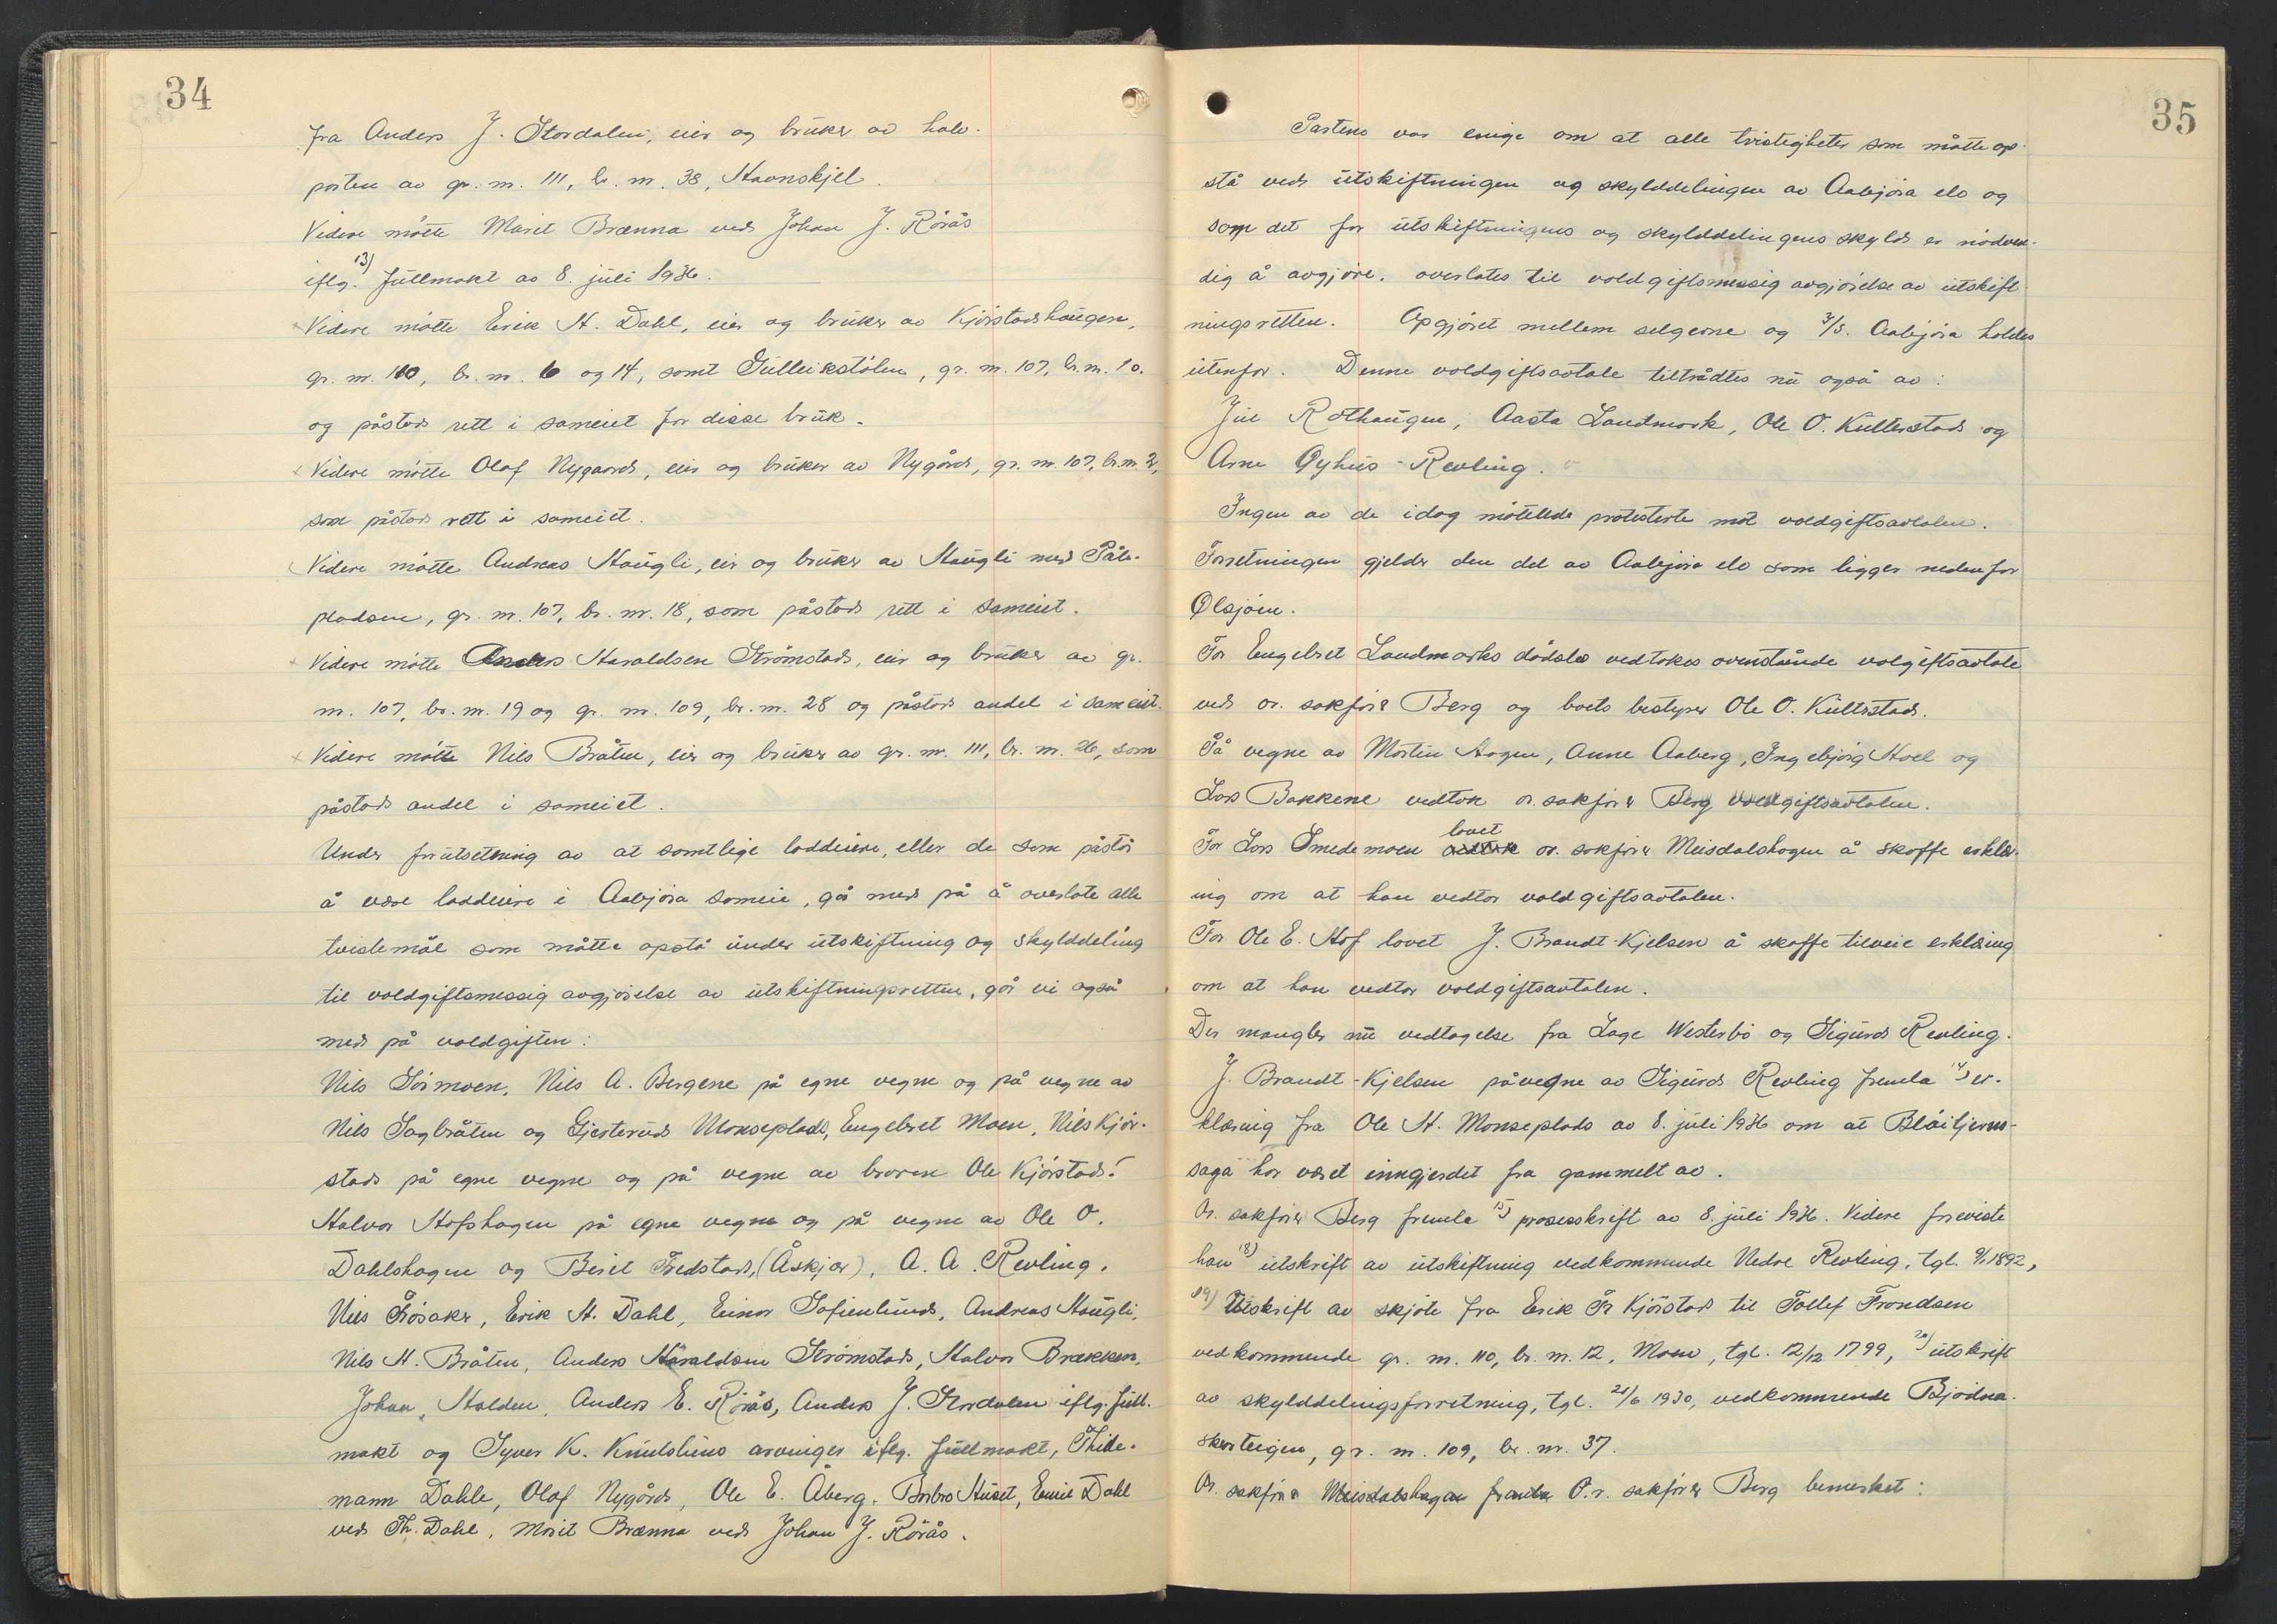 34
fra Anders J. Stordalen, eier og bruker av halv-
parten av gr. nr. 111, br. nr. 38, Havnskjel.
Videre møtte Marit Brænna ved Johan J. Rørås
iflg. 13) fullmakt av 8. juli 1936.
Videre møtte Erik H. Dahl, eier og bruker av Kjørstadhaugen,
gr. nr. 110, br. nr. 6 og 14, samt Gulleikstølen, gr. nr. 107, br. nr. 10.
og påstod rett i sameiet for disse bruk.
Videre møtte Olaf Nygaard, eier og bruker av Nygård, gr. nr. 107, br. nr. 2,
som påstod rett i sameiet.
Videre møtte Andreas Haugli, eier og bruker av Haugli med Påle-
pladsen, gr. nr. 107, br. nr. 18, som påstod rett i sameiet.
Videre møtte Anders Haraldsen Strømstad, eier og bruker av gr.
nr. 107, br. nr. 19 og gr. nr. 109, br. nr. 28 og påstod andel i sameiet.
Videre møtte Nils Bråten, eier og bruker av gr. nr. 111, br. nr. 26, som
påstod andel i sameiet.
Under forutsetning av at samtlige loddeiere, eller de som påstår
å være loddeiere i Aabjøra sameie, går med på å overlate alle
tvistemål som måtte opstå under utskiftning og skylddeling
til voldgiftsmessig avgjørelse av utskiftningsretten, går vi også
med på voldgiften:
Nils Sørmoen, Nils A. Bergene på egne vegne og på vegne av
Nils Sagbråten og Gjesterud Monseplads, Engebret Moen, Nils Kjør-
stad på egne vegne og på vegne av broren Ole Kjørstad.
Halvor Hofshagen på egne vegne og på vegne av Ole O.
Dahlshagen og Berit Fredstad, (Åskjær), A. A. Revling,
Nils Frøsaker, Erik H. Dahl, Einar Sofienlund, Andreas Haugli,
Nils H. Bråten, Anders Haraldsen Strømstad, Halvor Brækken,
Johan Halden, Anders E. Rørås, Anders J. Stordalen iflg. full-
makt og Syver K. Knutslunds arvinger iflg. fullmakt, Thide-
mann Dahle, Olaf Nygård, Ole E. Åberg, Barbro Huset, Emil Dahl
ved Th. Dahl, Marit Brænna ved Johan J. Rørås.
35
Partene var enige om at alle tvistigheter som måtte op-
stå ved utskiftningen og skylddelingen av Aabjøra elv og
som det for utskiftningens og skylddelingens skyld er nødven-
dig å avgjøre, overlates til voldgiftsmessig avgjørelse av utskift
ningsretten. Opgjøret mellem selgerne og A/S. Aabjøra holdes
utenfor. Denne voldgiftsavtale tiltrådtes nu også av:
Juel Rothaugen, Aasta Landmark, Ole O. Kulterstad og
Arne Øyhus-Revling.
Ingen av de idag møtende protesterte mot voldgiftsavtalen.
Forretningen gjelder den del av Aabjøra elv som ligger nedenfor
Ølsjøen.
For Engebret Landmarks dødsbo vedtokes ovenstående volgiftsavtale
ved or. sakfører Berg og boets bestyrer Ole O. Kulterstad.
På vegne av Martin Hagen, Anne Aaberg, Ingebjørg Hoel og
Lars Bakkene vedtok or. sakfører Berg voldgiftsavtalen.
For Lars Smedemoen lovet or. sakfører Meisdalshagen å skaffe erklær-
ing om at han vedtar voldgiftsavtalen.
For Ole E. Hof lovet J. Brandt-Kjelsen å skaffe tilveie erklæring
om at han vedtar voldgiftsavtalen.
Der mangler nu vedtagelse fra Lage Westerbø og Sigurd Revling.
J. Brandt-Kjelsen på vegne av Sigurd Revling fremla 14) er-
klæring fra Ole H. Monseplads av 8. juli 1936 om at Blåitjern-
saga har været inngjerdet fra gammelt av.
Or. sakfører Berg fremla 15) prosesskrift av 8. juli 1936. Videre foreviste
han 18) utskrift av utskiftning vedkommende Nedre Revling, tgl. 9/1 1892,
19) Utskrift av skjøte fra Erik Tr Kjørstad til Tollef Trondsen
vedkommende gr. nr. 110, br. nr. 12, Moen, tgl. 12/12 1799, 20) utskrift
av skylddelingsforretning, tgl. 21/6 1930, vedkommende Bjødna-
skarteigen, gr. nr. 109, br. nr. 37.
Or. sakfører Meisdalshagen fremla O.r. sakfører Berg bemerket: